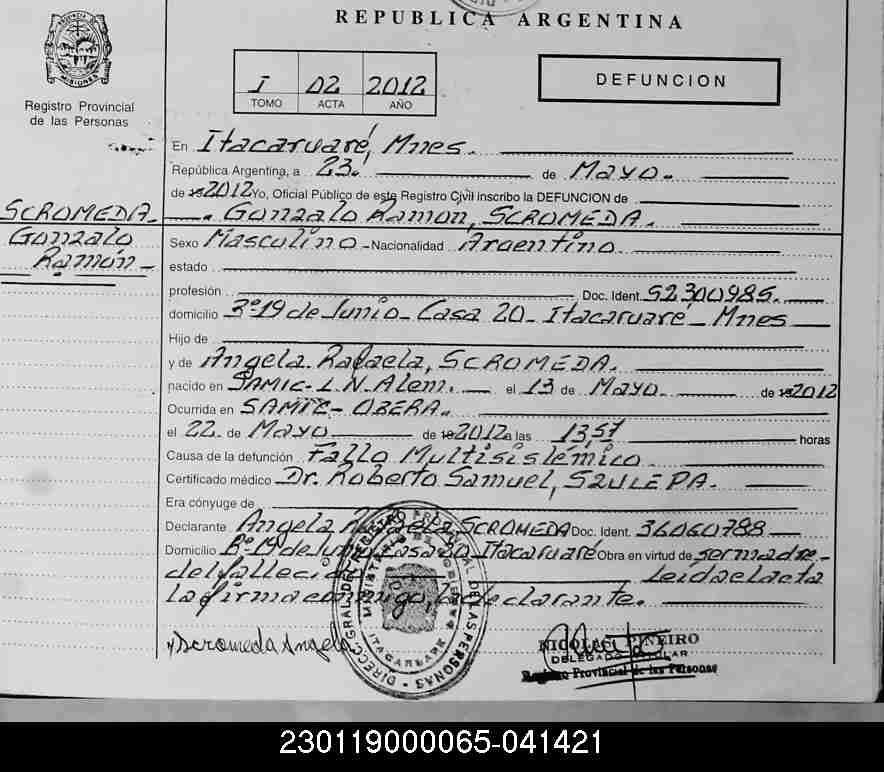 REPUBLICA ARGENTINA
PROVINCIA DE
MISIONES
Registro Provincial
de las Personas
I 02 2012
TOMO ACTA AÑO
DEFUNCION
En Itacaruaré, Mnes.
República Argentina, a 23. de Mayo.
de 2012 Yo, Oficial Público de este Registro Civil inscribo la DEFUNCION de
SCROMEDA
Gonzalo
Ramón
Gonzalo Ramon, SCROMEDA.
Sexo Masculino Nacionalidad Argentino
estado
profesión Doc. Ident. 52300985.
domicilio Bº 19 de Junio - Casa 20 - Itacaruaré - Mnes
Hijo de
y de Angela Rafaela, SCROMEDA.
nacido en SAMIC - L.N. Alem. el 13 de Mayo de 2012
Ocurrida en SAMIC - OBERA.
el 22 de Mayo de 2012 a las 1357 horas
Causa de la defunción Fallo Multisistémico
Certificado médico Dr. Roberto Samuel, SZULEPA.
Era cónyuge de
Declarante Angela SCROMEDA Doc. Ident. 36060788
Domicilio Bº 19 de Casa 20 Itacaruaré Obra en virtud de ser madre
del Leida el acta
la firma declarante.
Scromeda Angela
DIRECC. GRAL. DEL REGISTRO PROVINCIAL DE LAS PERSONAS
MINISTERIO DE GOBIERNO
ITACARUARE
PINEIRO
DELEGADO TITULAR
Registro Provincial de las Personas
230119000065-041421